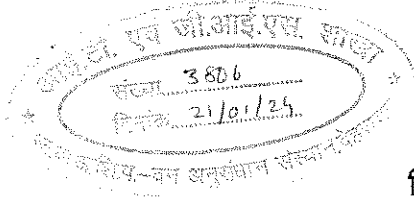 आई.टी. एवं जी.आई.एस. शाखा
संख्या 3806
दिनांक 21/01/24
वन अनुसंधान संस्थान